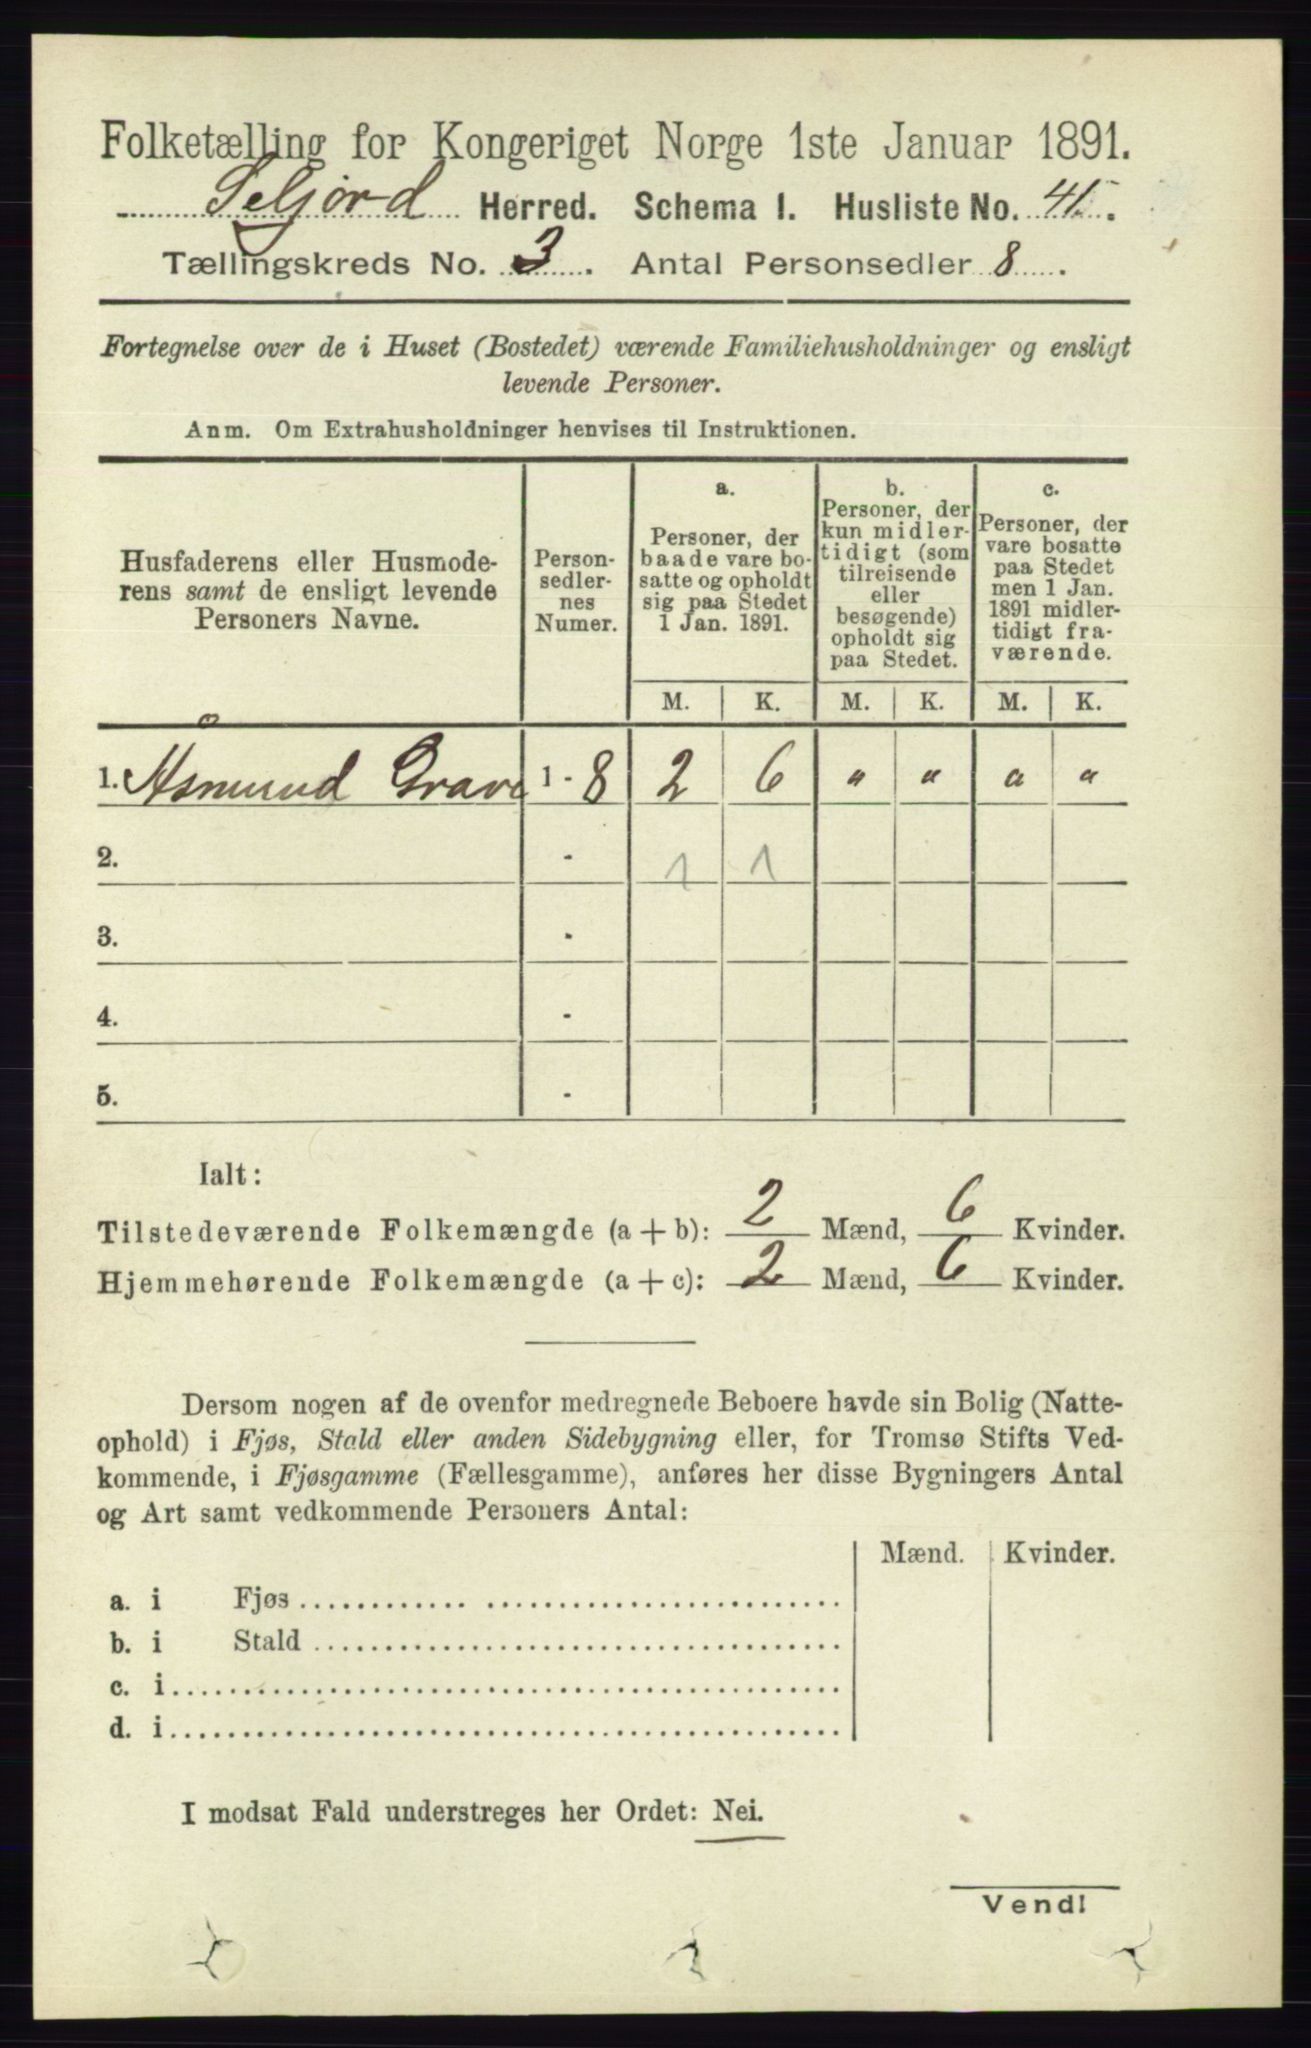 Folketælling for Kongeriget Norge 1ste Januar 1891.
Seljord Herred. Schema I. Husliste No. 45.
Tællingskreds No. 3. Antal Personsedler 8.
Fortegnelse over de i Huset (Bostedet) værende Familiehusholdninger og ensligt
levende Personer.
Anm. Om Extrahusholdninger henvises til Instruktionen.
Husfaderens eller Husmode-
rens samt de ensligt levende
Personers Navne.
Person-
sedler-
nes
Numer.
a.
Personer, der
baade vare bo-
satte og opholdt
sig paa Stedet
1 Jan. 1891.
b.
Personer, der
kun midler-
tidigt (som
tilreisende
eller
besøgende)
opholdt sig
paa Stedet.
c.
Personer, der
vare bosatte
paa Stedet
men 1 Jan.
1891 midler-
tidigt fra-
værende.
M. K. M. K. M. K.
1. Åsmund Grave 1 - 8 2 6 " " " "
2. - 1 1
3. -
4. -
5. -
Ialt:
Tilstedeværende Folkemængde (a + b): 2 Mænd, 6 Kvinder.
Hjemmehørende Folkemængde (a + c): 2 Mænd, 6 Kvinder.
Dersom nogen af de ovenfor medregnede Beboere havde sin Bolig (Natte-
ophold) i Fjøs, Stald eller anden Sidebygning eller, for Tromsø Stifts Ved-
kommende, i Fjøsgamme (Fællesgamme), anføres her disse Bygningers Antal
og Art samt vedkommende Personers Antal:
Mænd. Kvinder.
a. i Fjøs
b. i Stald
c. i
d. i
I modsat Fald understreges her Ordet: Nei.
Vend!